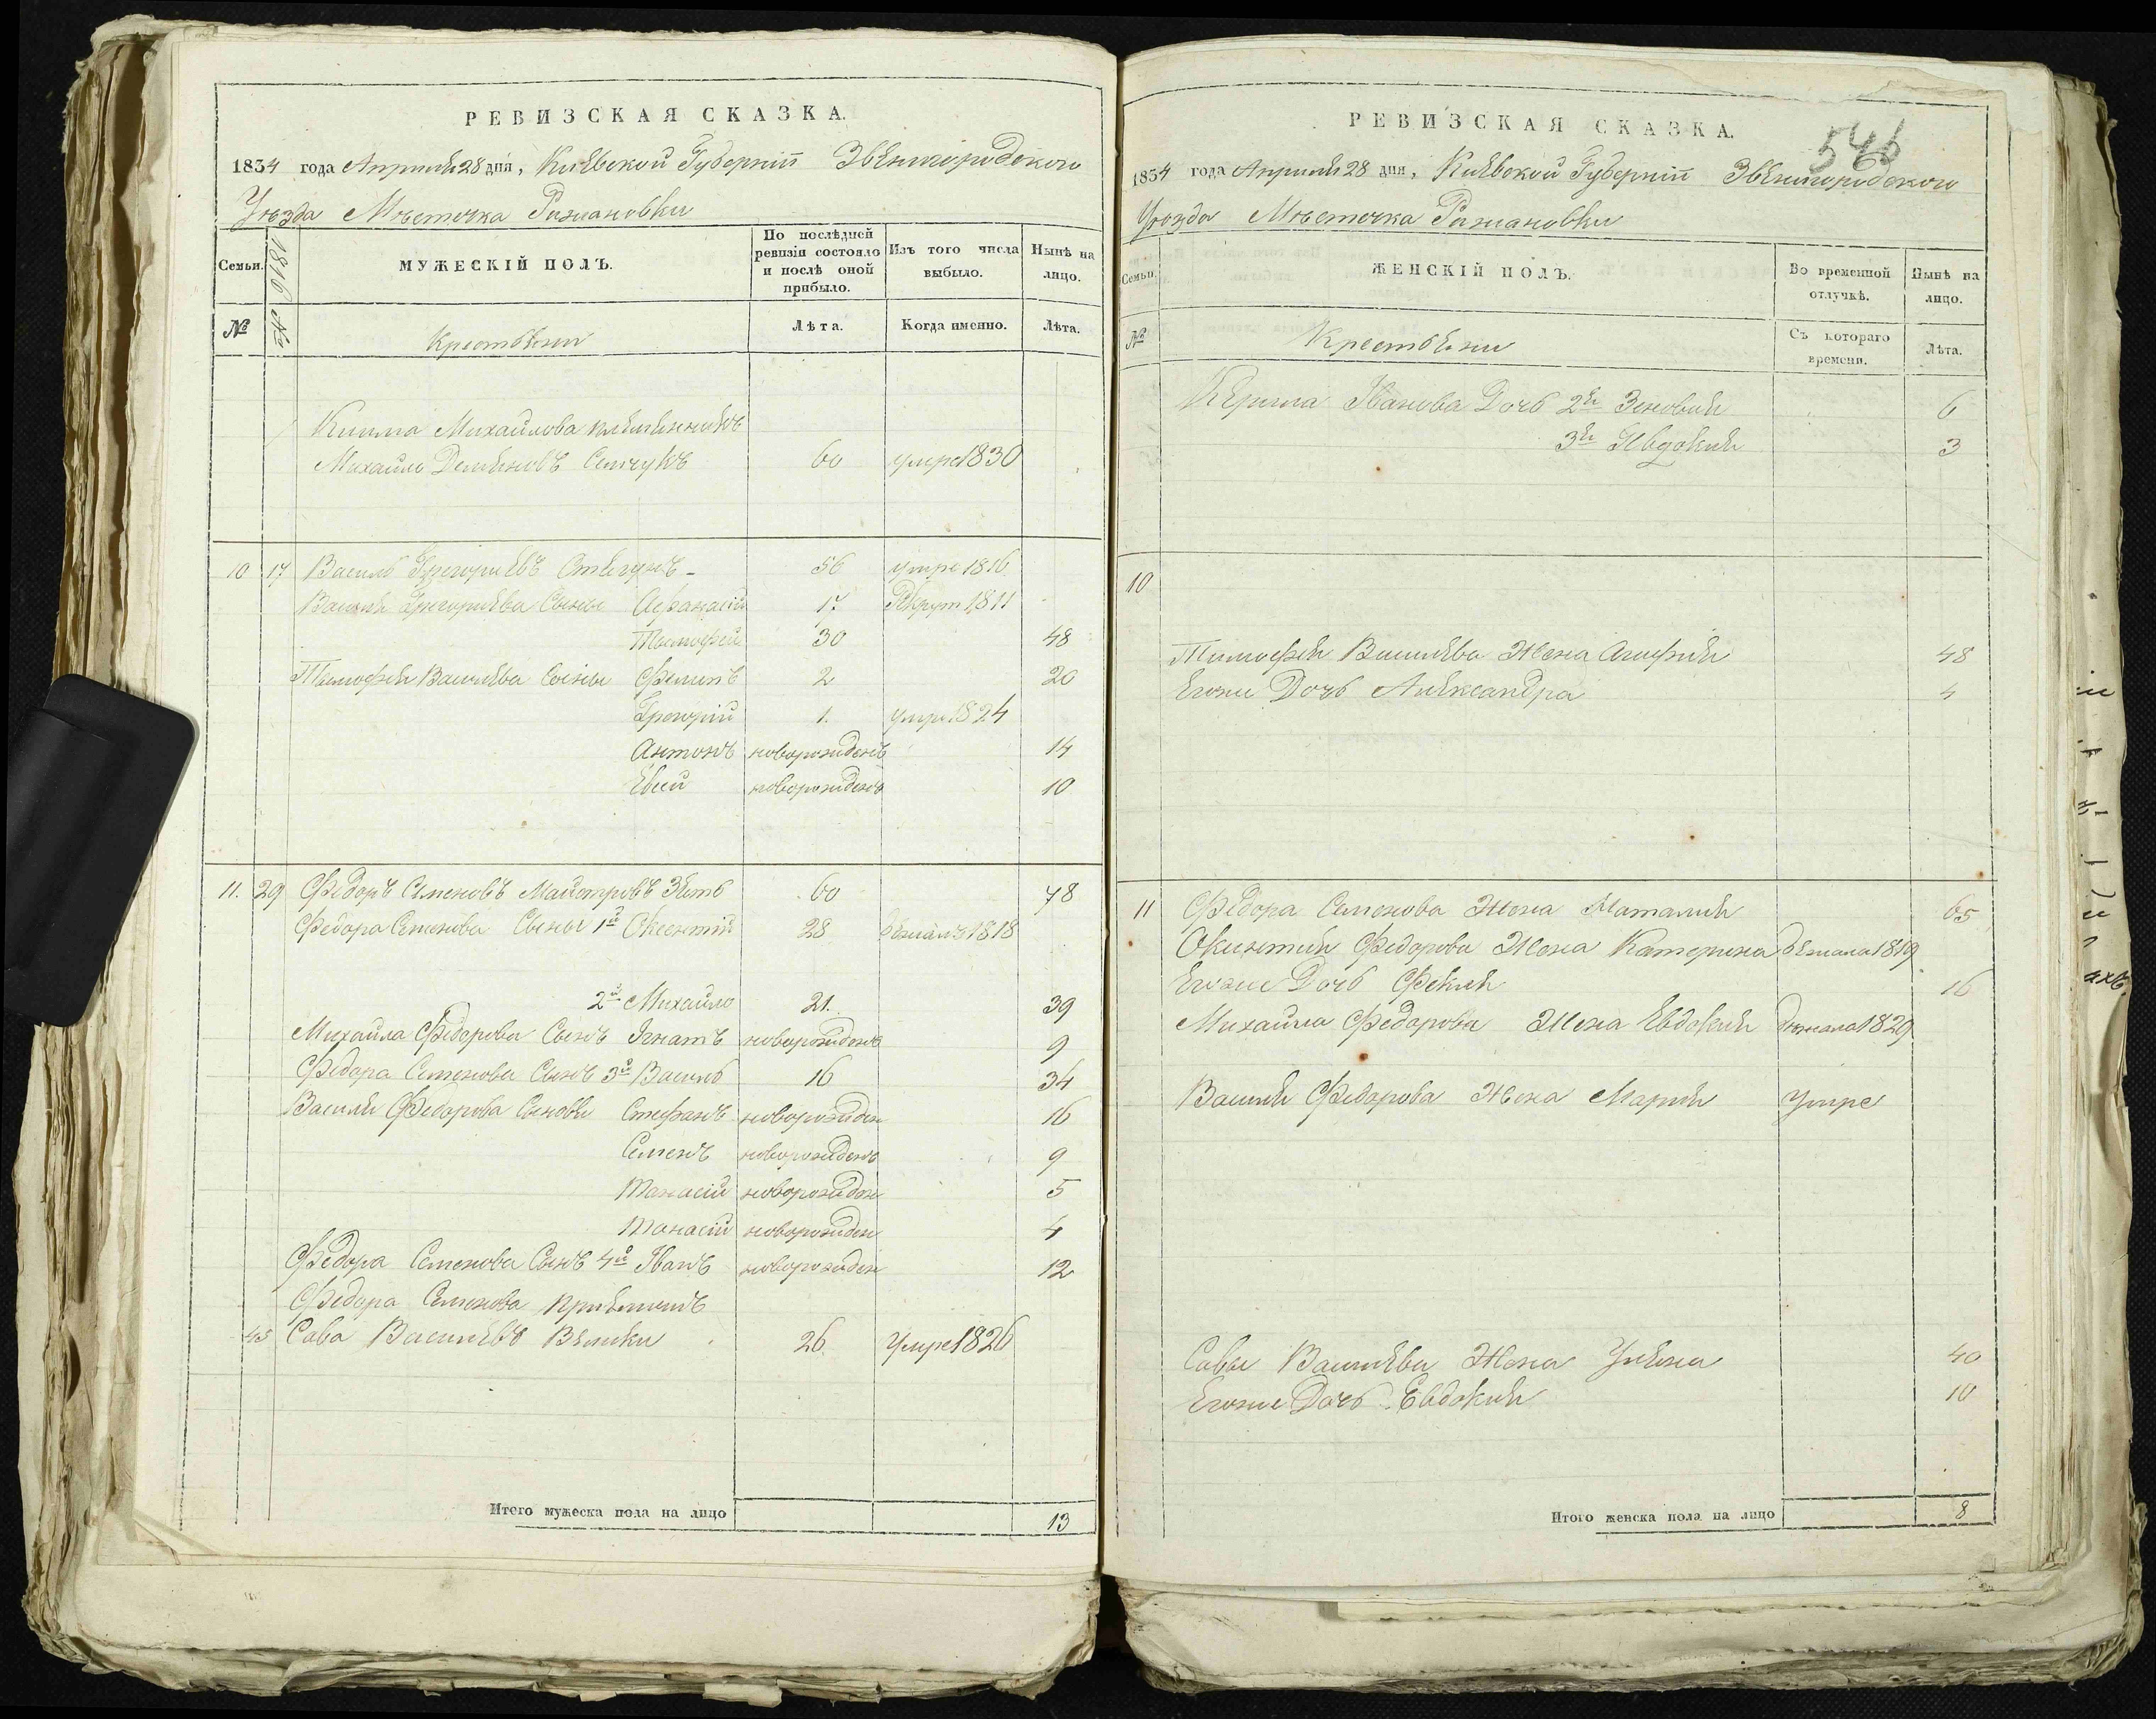 РЕВИЗСКАЯ СКАЗКА.
1834 года Апреля 28 дня, Киевской Губернии Звенигородского
Уезда Местечка Рижановки
Семьи. 1816 №
МУЖЕСКІЙ ПОЛЪ.
По послѣдней ревизіи состояло и послѣ оной прибыло.
Изъ того числа выбыло.
Нынѣ на лицо.
№
Крестьяни
Лѣта.
Когда именно.
Лѣта.
Михайлова племянникъ
Михайло Демяновъ 60 умре 1830
10 17 Василь Григориевъ 56 умре 1816
Василя Григориева Сыны Афанасій 17 Рекрут 1811
Тимофей 30 48
Тимофея Василева Сыны Филипъ 2 20
Григорій 1. умре 1824
Антонъ новорожденъ 14
Евсей новорожденъ 10
11. 29 Федоръ Семеновъ Майстровъ Зять 60 78
Федора Семенова Сыны 1й Оксентій 28 бежалъ 1818
2й Михайло 21. 39
Михайла Федорова Сынъ Игнатъ новорожденъ 9
Федора Семенова Сынъ 3й Василь 16 34
Василя Федорова Сыновя Стефанъ новорожден 16
Семенъ новорожденъ 9
Танасій новорожден 5
Танасій новорожден 4
Федора Семенова Сынъ 4й Иванъ новорожден 12
Федора Семенова приемишъ
45 Сава Василевъ 26 умре 1826
Итого мужеска пола на лицо 13
РЕВИЗСКАЯ СКАЗКА.
546
1834 года Апреля 28 дня, Киевской Губернии Звенигородского
Уезда Местечка Рижановки
Семьи.
ЖЕНСКІЙ ПОЛЪ.
Во временной отлучкѣ.
Нынѣ на лицо.
№
Крестьяни
Съ котораго времени.
Лѣта.
Иванова Дочь 2я Зеновия 6
3я Явдокия 3
10
Тимофея Василева Жена Агафия 48
Егоже Дочь Александра 4
11 Федора Семенова Жена Наталия 65
Оксентия Федорова Жена Катерина бежала 1819
Егоже Дочь Фекля 16
Михайла Федорова Жена Евдокия бежала 1829
Василя Федорова Жена Мария умре
Савы Василева Жена Уляна 40
Егоже Дочь Евдокия 10
Итого женска пола на лицо 8